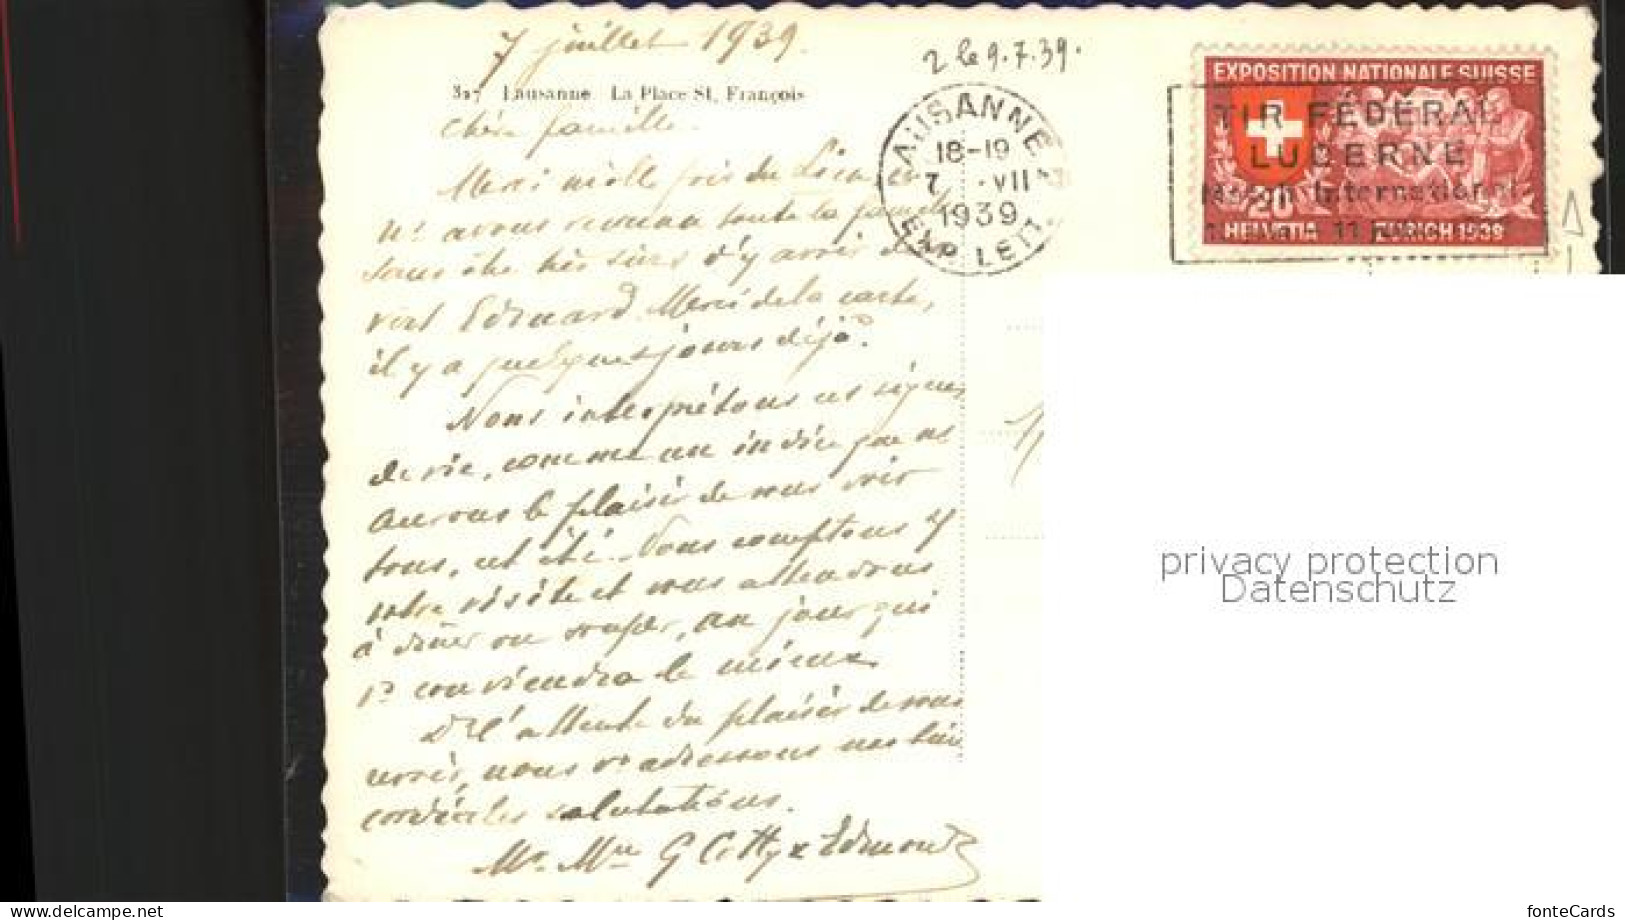 7 juillet 1939.
2 le 9.7.39.
327 Lausanne La Place St. François
Chère famille.
Merci mille fois du
ns avons reconnu toute la famille
sans être très sûrs d'y avoir
vert Edouard. Merci de la carte,
il y a quelques jours déjà.
Nous interprétons ces signes
de vie, comme un indice que ns
aurons le plaisir de vous voir
tous, cet été. Nous comptons s/
votre visite et vous attendrons
à dîner ou souper, au jour qui
vs conviendra le mieux.
D. l'attente du plaisir de vous
revoir, nous vs adressons nos bien
cordiales salutations.
Mr. Mme G. & Edmond
LAUSANNE 1
18-19
7. VII
1939
EXP. LETT.
EXPOSITION NATIONALE SUISSE
20
HELVETIA ZÜRICH 1939
TIR FÉDÉRAL
LUCERNE
Match International
privacy protection
Datenschutz
www.delcampe.net
fonteCards